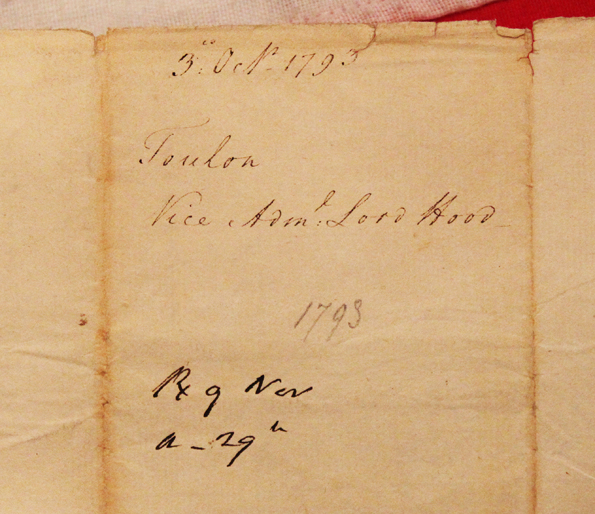 3d: Octr. 1793
Toulon
Vice Adml: Lord Hood
1793
Rx 9 Nov
a - 29th